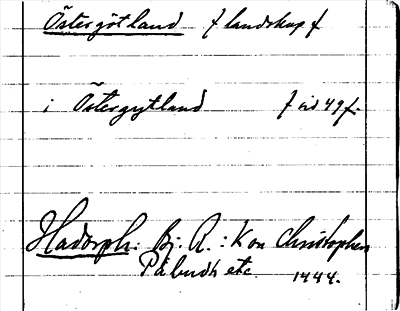 Östergötland f landskap f
i Östergytland f vid 49 f.
Hadorph: Bj. R.: Kon Christophers
Påbudh etc. 1444.